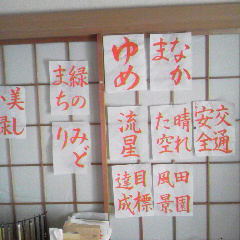 なかま
ゆめ
交通
安全
晴れ
た空
流星
田園
風景
目標
達成
緑の
まち
みどり
美し
い緑